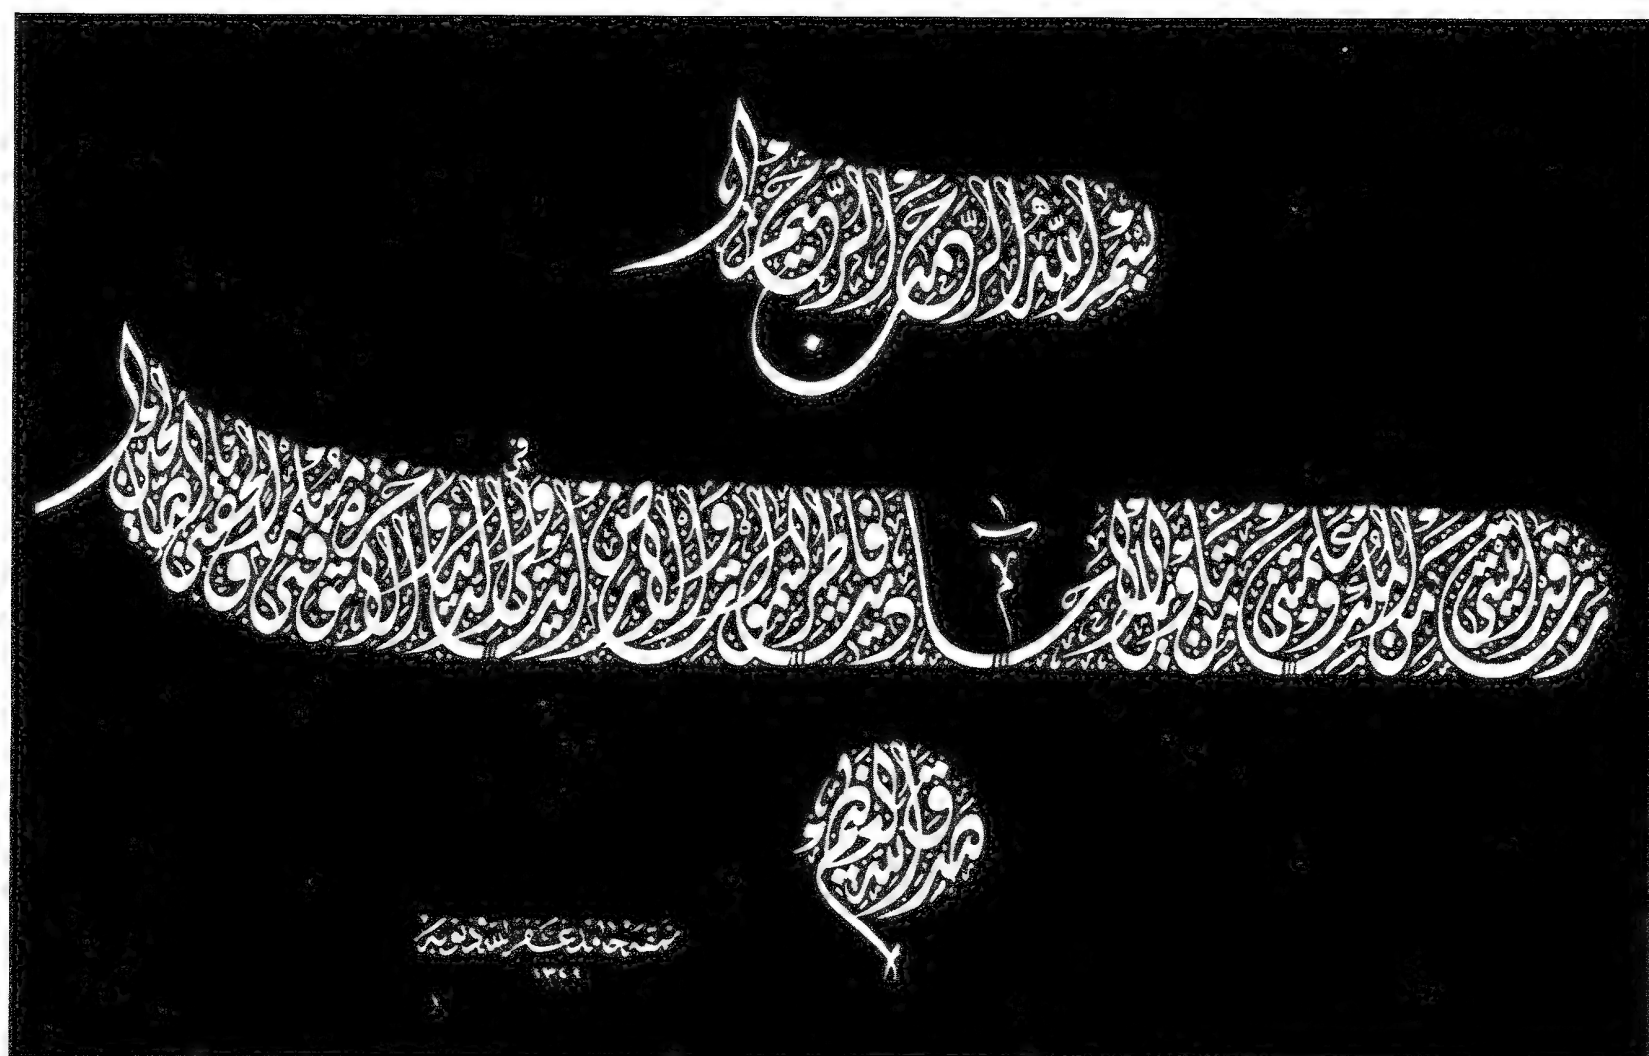 بسم الله الرحمن الرحيم
رب قد آتيتني من الملك وعلمتني من تأويل الأحاديث فاطر السموات والأرض أنت وليي في الدنيا والآخرة توفني مسلما وألحقني بالصالحين
صدق الله العظيم
نمقه حامد غفر الله ذنوبه